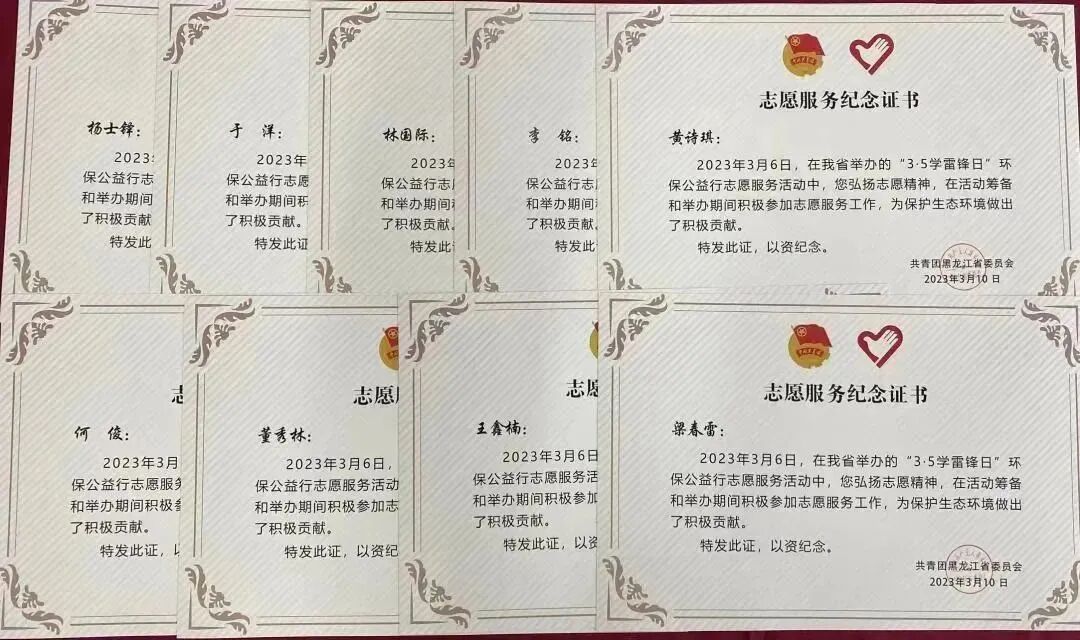 杨士铎：
2023年
保公益行志
和举办期间
了积极贡献
特发此
于 洋：
2023年
保公益行志愿
和举办期间积
了积极贡献
特发此证
林国际：
2023
保公益行志
和举办期间
了积极贡献
特发此
李 铭：
2023年
保公益行志愿
和举办期间积
了积极贡献。
特发此证
志愿服务纪念证书
黄诗琪：
2023年3月6日，在我省举办的“3·5学雷锋日”环
保公益行志愿服务活动中，您弘扬志愿精神，在活动筹备
和举办期间积极参加志愿服务工作，为保护生态环境做出
了积极贡献。
特发此证，以资纪念。
共青团黑龙江省委员会
2023年3月10日
何 俊：
2023年3月
保公益行志愿服
和举办期间积极
了积极贡献。
特发此证，以
志愿服
董秀林：
2023年3月6日，
保公益行志愿服务活动
和举办期间积极参加
了积极贡献。
特发此证，以资纪
志愿
王鑫楠：
2023年3月6日
保公益行志愿服务活
和举办期间积极参
了积极贡献。
特发此证，以资
志愿服务纪念证书
梁春雷：
2023年3月6日，在我省举办的“3·5学雷锋日”环
保公益行志愿服务活动中，您弘扬志愿精神，在活动筹备
和举办期间积极参加志愿服务工作，为保护生态环境做出
了积极贡献。
特发此证，以资纪念。
共青团黑龙江省委员会
2023年3月10日